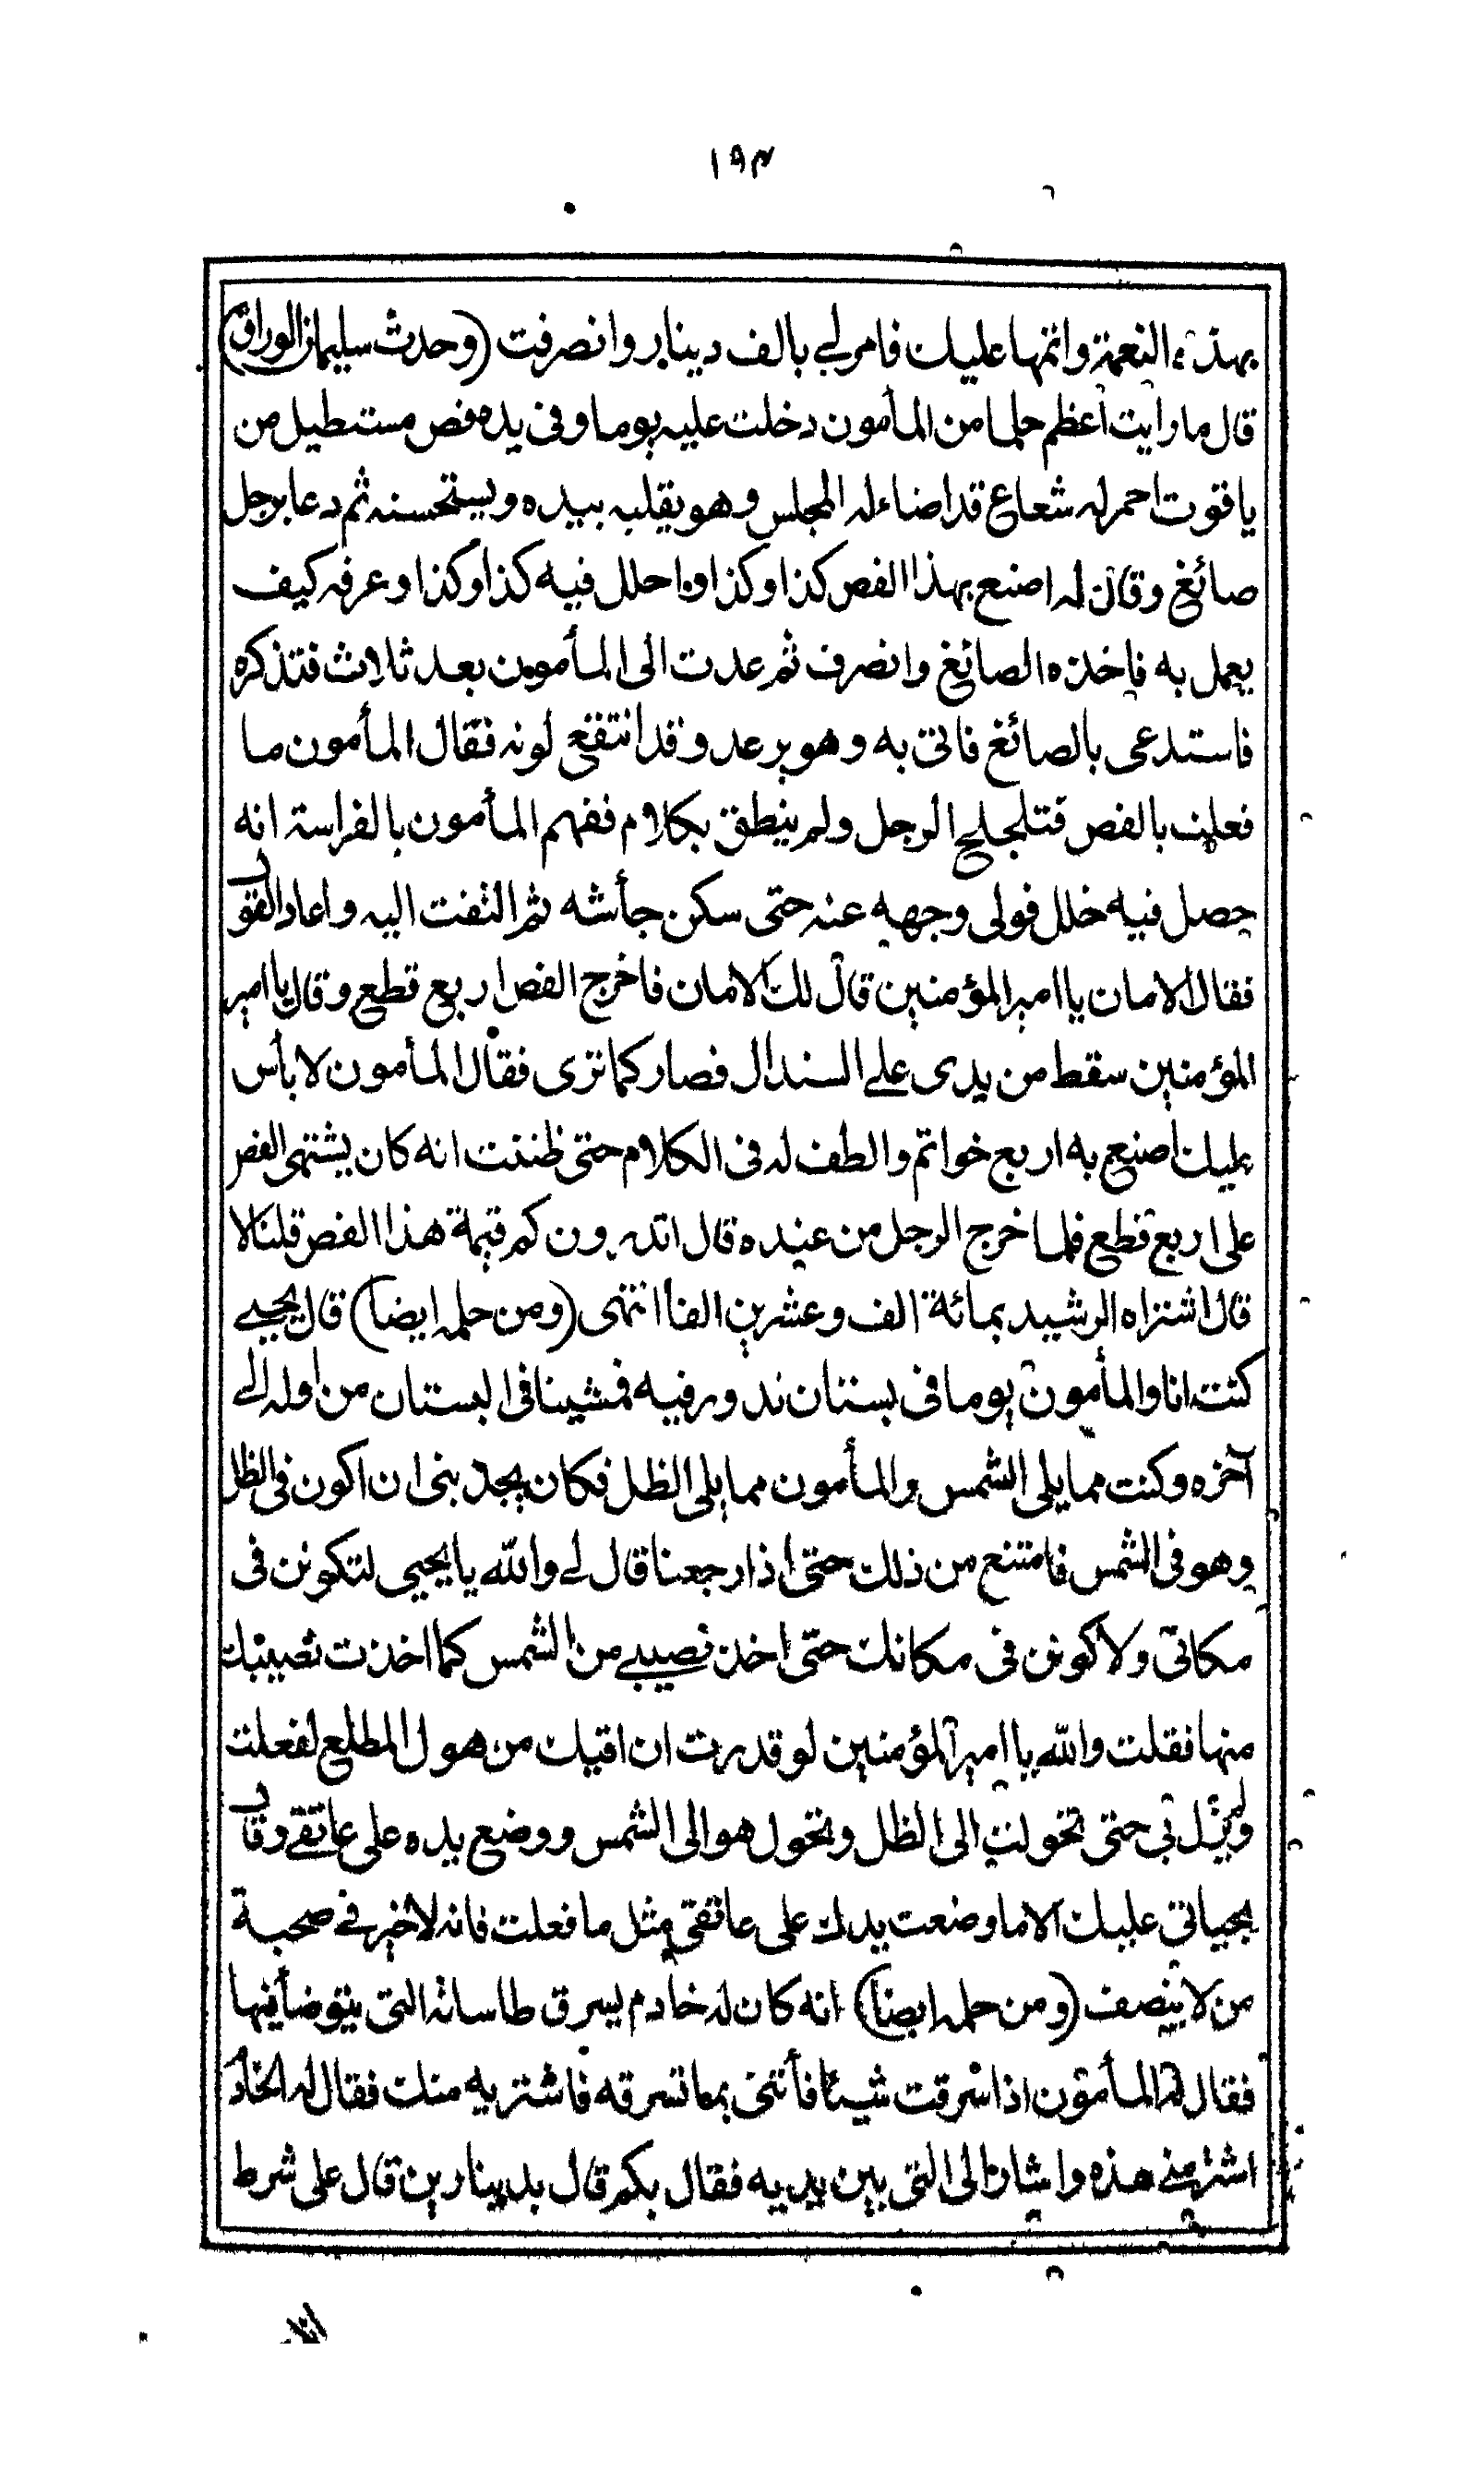 ١٩٣
بهذه النعمة واتمها عليك فامر لي بالف دينار وانصرفت (وحدث سليمان الوراق)
قال ما رايت أعظم حلما من المأمون دخلت عليه يوما وفى يده فص مستطيل من
ياقوت احمر له شعاع قد اضاء له المجلس وهو يقلبه بيده ويستحسنه ثم دعا برجل
صائغ وقال له اصنع بهذا الفص كذا وكذا واحلل فيه كذا وكذا وعرفه كيف
يعمل به فاخذه الصائغ وانصرف ثم عدت الى المأمون بعد ثلاث فتذكره
فاستدعى بالصائغ فاتى به وهو يرعد وقد انتقع لونه فقال المأمون ما
فعلت بالفص فتلجلج الرجل ولم ينطق بكلام ففهم المأمون بالفراسة انه
حصل فيه خلل فولى وجهه عنه حتى سكن جأشه ثم التفت اليه واعاد القول
فقال الامان يا امير المؤمنين قال لك الامان فاخرج الفص اربع قطع وقال يا امير
المؤمنين سقط من يدى على السندال فصار كما ترى فقال المأمون لا بأس
عليك اصنع به اربع خواتم والطف له فى الكلام حتى ظننت انه كان يشتهى الفص
على اربع قطع فلما خرج الرجل من عنده قال اتدرون كم قيمة هذا الفص قلنا لا
قال اشتراه الرشيد بمائة الف وعشرين الفا انتهى (ومن حلمه ايضا) قال يحيى
كنت انا والمأمون يوما فى بستان ندور فيه فمشينا فى البستان من اوله الى
آخره وكنت مما يلى الشمس والمأمون مما يلى الظل فكان يجذبنى ان اكون فى الظل
وهو فى الشمس فامتنع من ذلك حتى اذا رجعنا قال لى والله يا يحيى لتكونن فى
مكانى ولاكونن فى مكانك حتى اخذ نصيبى من الشمس كما اخذت نصيبك
منها فقلت والله يا امير المؤمنين لو قدرت ان اقيك من هول المطلع لفعلت
ولم يزل بى حتى تحولت الى الظل وتحول هو الى الشمس ووضع يده على عاتقى وقال
بحياتى عليك الا ما وضعت يدك على عاتقى مثل ما فعلت فانه لا خير فى صحبة
من لا ينصف (ومن حلمه ايضا) انه كان له خادم يسرق طاساته التى يتوضأ فيها
فقال له المأمون اذا سرقت شيئا فأتنى بما تسرقه فاشتريه منك فقال له الخادم
اشتر منى هذه واشار الى التى بين يديه فقال بكم قال بدينارين قال على شرط